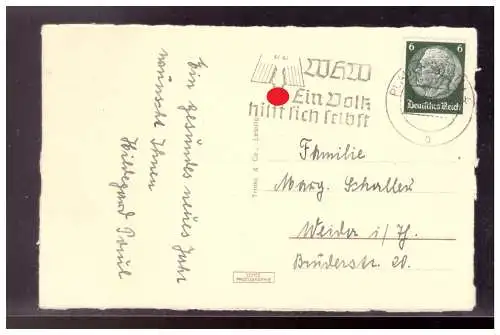 Ein gesundes neues Jahr
wünscht Ihnen
Hildegard
WHW
Ein Volk
hilft sich selbst
6 6
Deutsches Reich
Familie
Marg. Schaller
Weida i/Th.
Brüderstr. 20.
ECHTE
PHOTOGRAPHIE